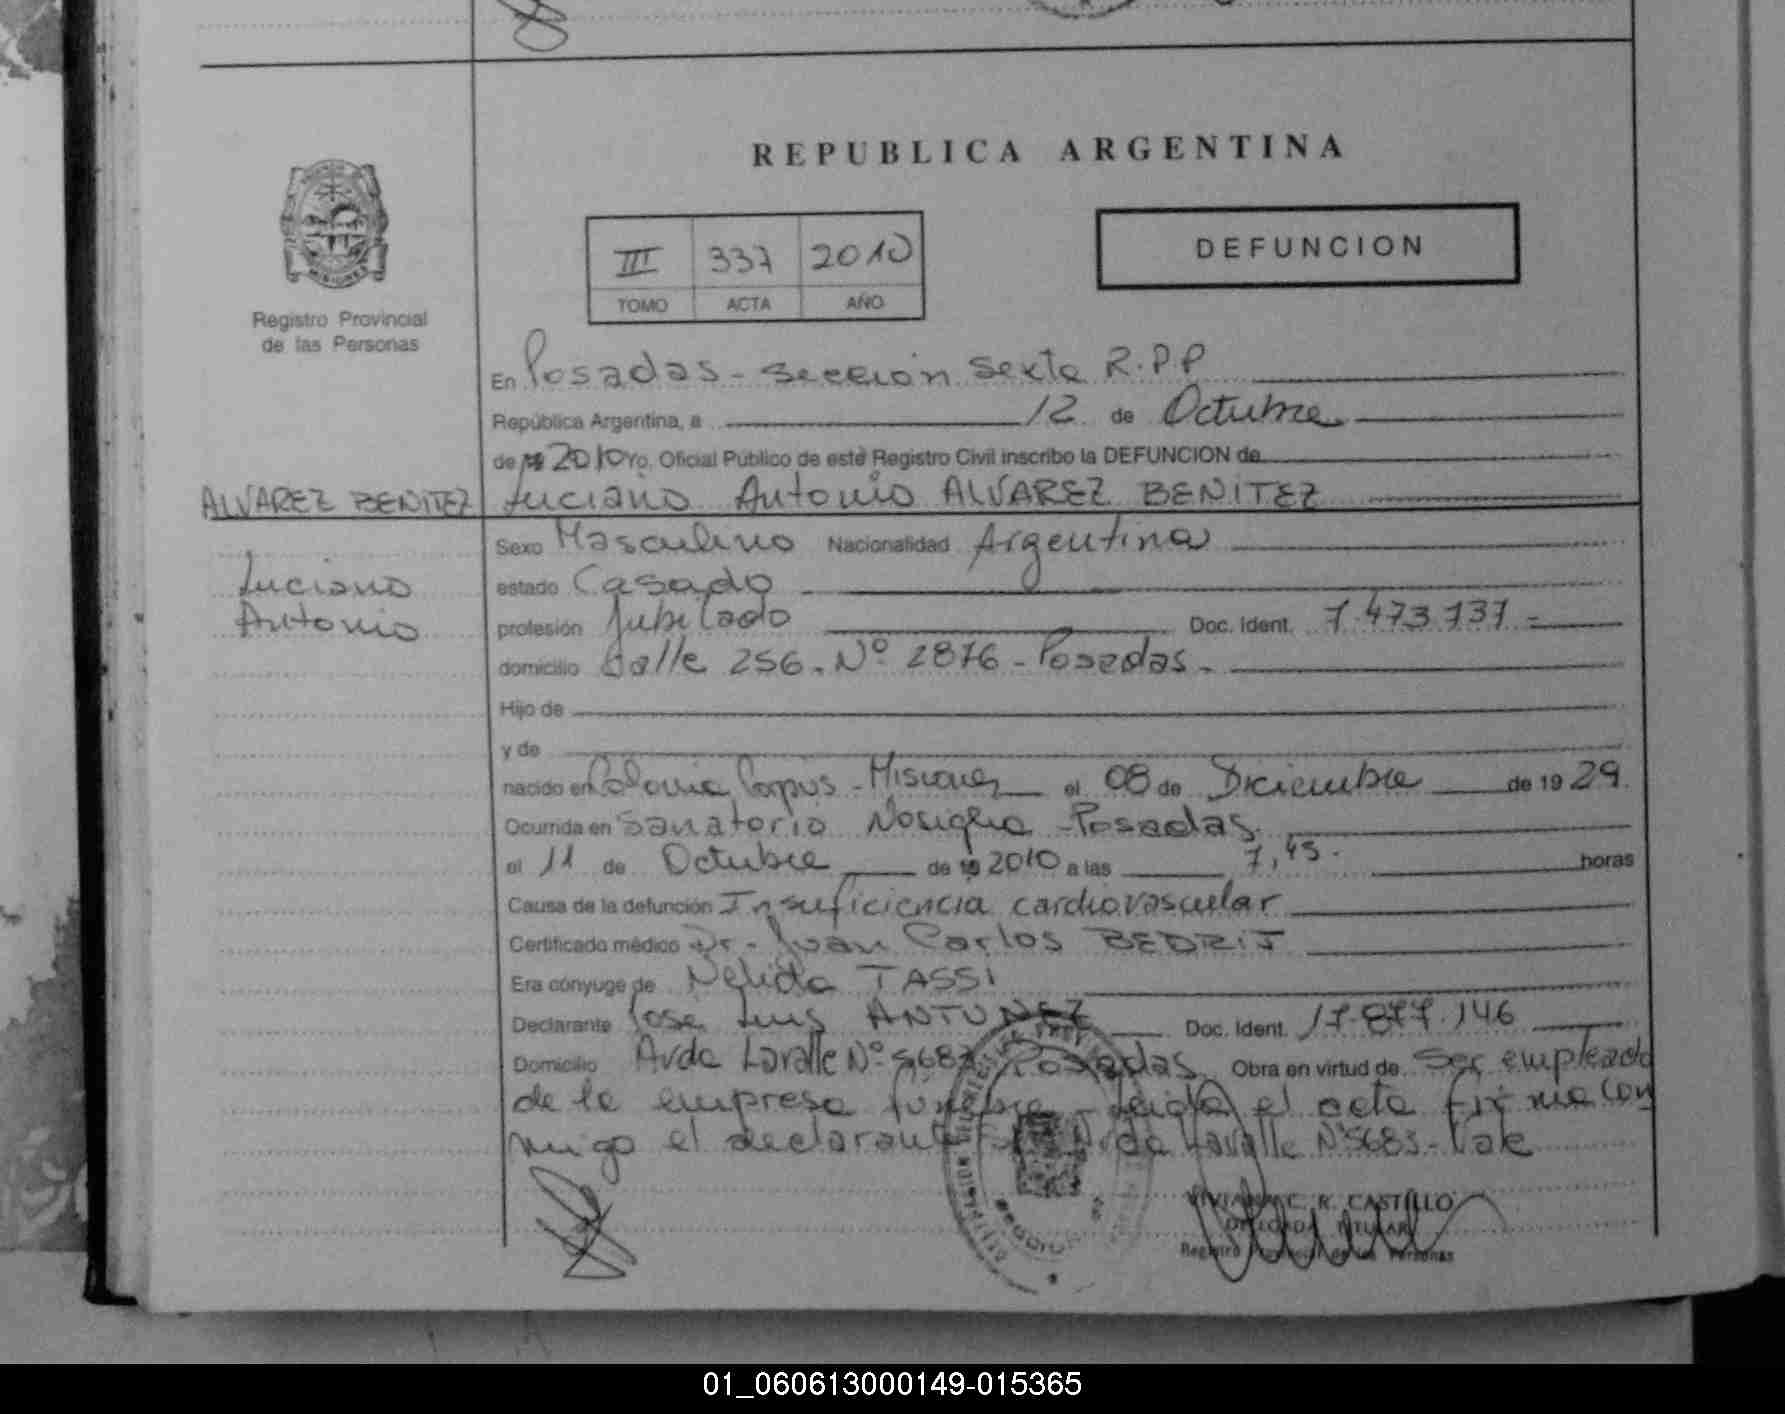 REPUBLICA ARGENTINA
MISIONES
Registro Provincial
de las Personas
III 337 2010
TOMO ACTA AÑO
DEFUNCION
En Posadas - sección sexta R.P.P
República Argentina, a 12 de Octubre
de 19 2010 Yo, Oficial Público de este Registro Civil inscribo la DEFUNCION de
ALVAREZ BENITEZ
Luciano Antonio ALVAREZ BENITEZ
Luciano
Antonio
Sexo Masculino Nacionalidad Argentina
estado Casado
profesión Jubilado Doc. Ident. 7.473.737 -
domicilio Calle 256 - Nº 2876 - Posadas -
Hijo de
y de
nacido en Colonia Corpus - Misiones el 08 de Diciembre de 19 29.
Ocurrida en Sanatorio Nosiglia - Posadas
el 11 de Octubre de 19 2010 a las 7,45. horas
Causa de la defunción Insuficiencia cardiovascular
Certificado médico Dr. Juan Carlos BEDRIJ
Era cónyuge de Nelida TASSI
Declarante José Luis ANTUNEZ Doc. Ident. 17.877.146
Domicilio Avda Lavalle Nº 5683 Posadas Obra en virtud de Ser empleado
de la empresa fúnebre - leida el acta firma con
migo el declarante Avda Lavalle Nº 5683 - Vale
VIVIANA C. R. CASTILLO
DELEGADA TITULAR
Registro Provincial de las Personas
01_060613000149-015365